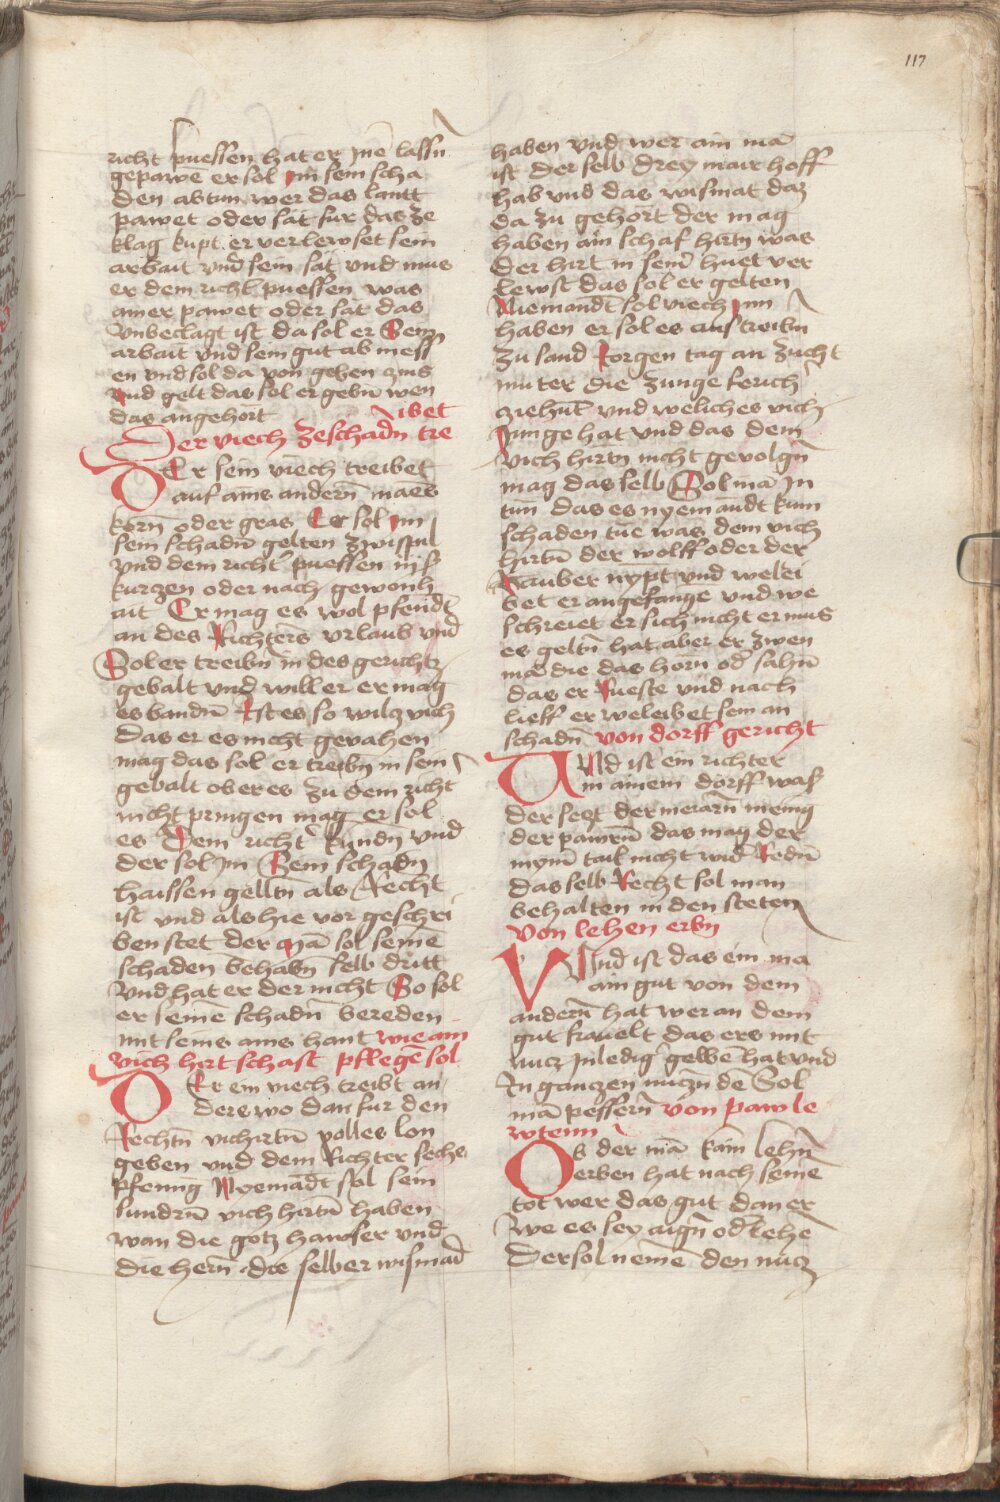 117
richt puessen hat er jne lassn
gepawē er sol jm sein scha
den abtun wer das lantt
pawet oder sat fur das ze
klag kupt er verlewset sein
arbait vnd sein sat vnd mus
er dem richt puessen was
ainer pawet oder sat das
vnbeclagt ist da sol er Sein
arbait vnd sein gut ab mess
en vnd sol da von geben zins
vnd gelt das sol er gebn wen
das angehort
Der viech zeschadn tre
ibet
DEr sein viech treibet
auf ains andern maēs
korn oder gras Er sol jm
sein schadn gelten zwispil
vnd dem richt puessen in
kurzen oder nach gewonh
ait Er mag es wol pfendt
an des Richters vrlaub vnd
Sol er treibn in des gerichtz
gebalt vnd will er er mag
es bandn Ist es so wilz vich
das er es nicht gevahen
mag das sol er treibn in sein
gebalt ob er es zu dem richt
nicht pringen mag er sol
es Dem richt kundn vnd
der sol jm Sein schadn
haissen gelltn als Recht
ist vnd als hie vor geschri
ben stet der mā sol seinē
schaden behabn selb dritt
vnd hat er der nicht So sol
er seinē schadn bereden
mit seins ains hant wie ain
vich hirt schaft pflegē sol
DEr ein viech treibt an
ders wo dan fur den
Rechtn vichirtn volles lon
geben vnd dem Richter sechs
pfennig Nyemādt sol sein
sundrn vich hirtn haben
wan die gotz hawser vnd
die hern die selber wismad
haben vnd wer ain mā
ist der selb drey mair hoff
hab vnd das wismat daz
da zu gehort der mag
haben ain schaf hirtn was
der hirt in seinr huet ver
lewst das sol er gelten
Niemandt sol viech jnn
haben er sol es aus treibn
zu sand Jorgen tag an zucht
muter die zunge ferich
ziehnt vnd weliches vich
Junge hat vnd das dem
vich hirtn nicht gevolgn
mag das selb Sol mā jn
tun das es nyemandt kain
schaden tue was dem vich
hirtn der wolff oder der
Rauber nypt vnd welei
bet er angefange vnd we
schreiet er sich nicht er mus
es geltn hat aber er zwen
mā die das horn od sahn
das er Rueffte vnd nach
lieff er weleibet sein an
schadn von dorff gericht
VNd ist ein richter
in ainem dorff was
der segt der merarn menig
der pawrn das mag der
mynn tail nicht wid Redn
das selb Recht sol man
behalten in den steten
Von lehen erbn
VNd ist das ein mā
ain gut von dem
andern hat wer an dem
gut fravelt das ers mit
nucz jn ledig gelbē hat vnd
In ganczen nuczn dē Sol
mā pessern von paw le
wtenn
Ob der mā kain lehn
erben hat nach seinē
tot wer das gut dan er
we es sey aign od lehē
der sol nemē den nucz